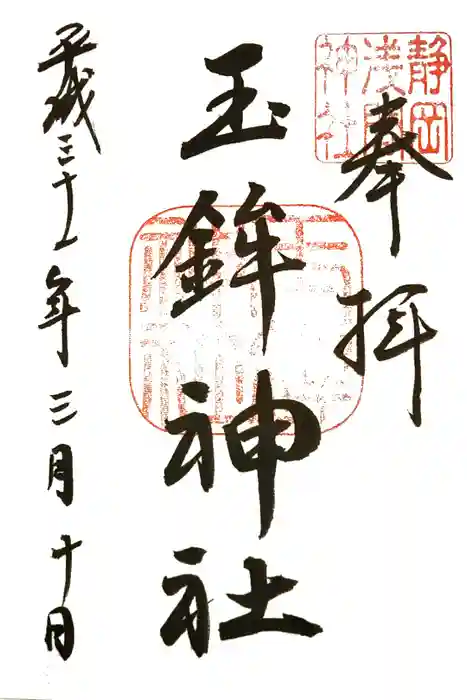 奉拝
静岡
浅間
神社
玉鉾神社
平成三十一年三月十日